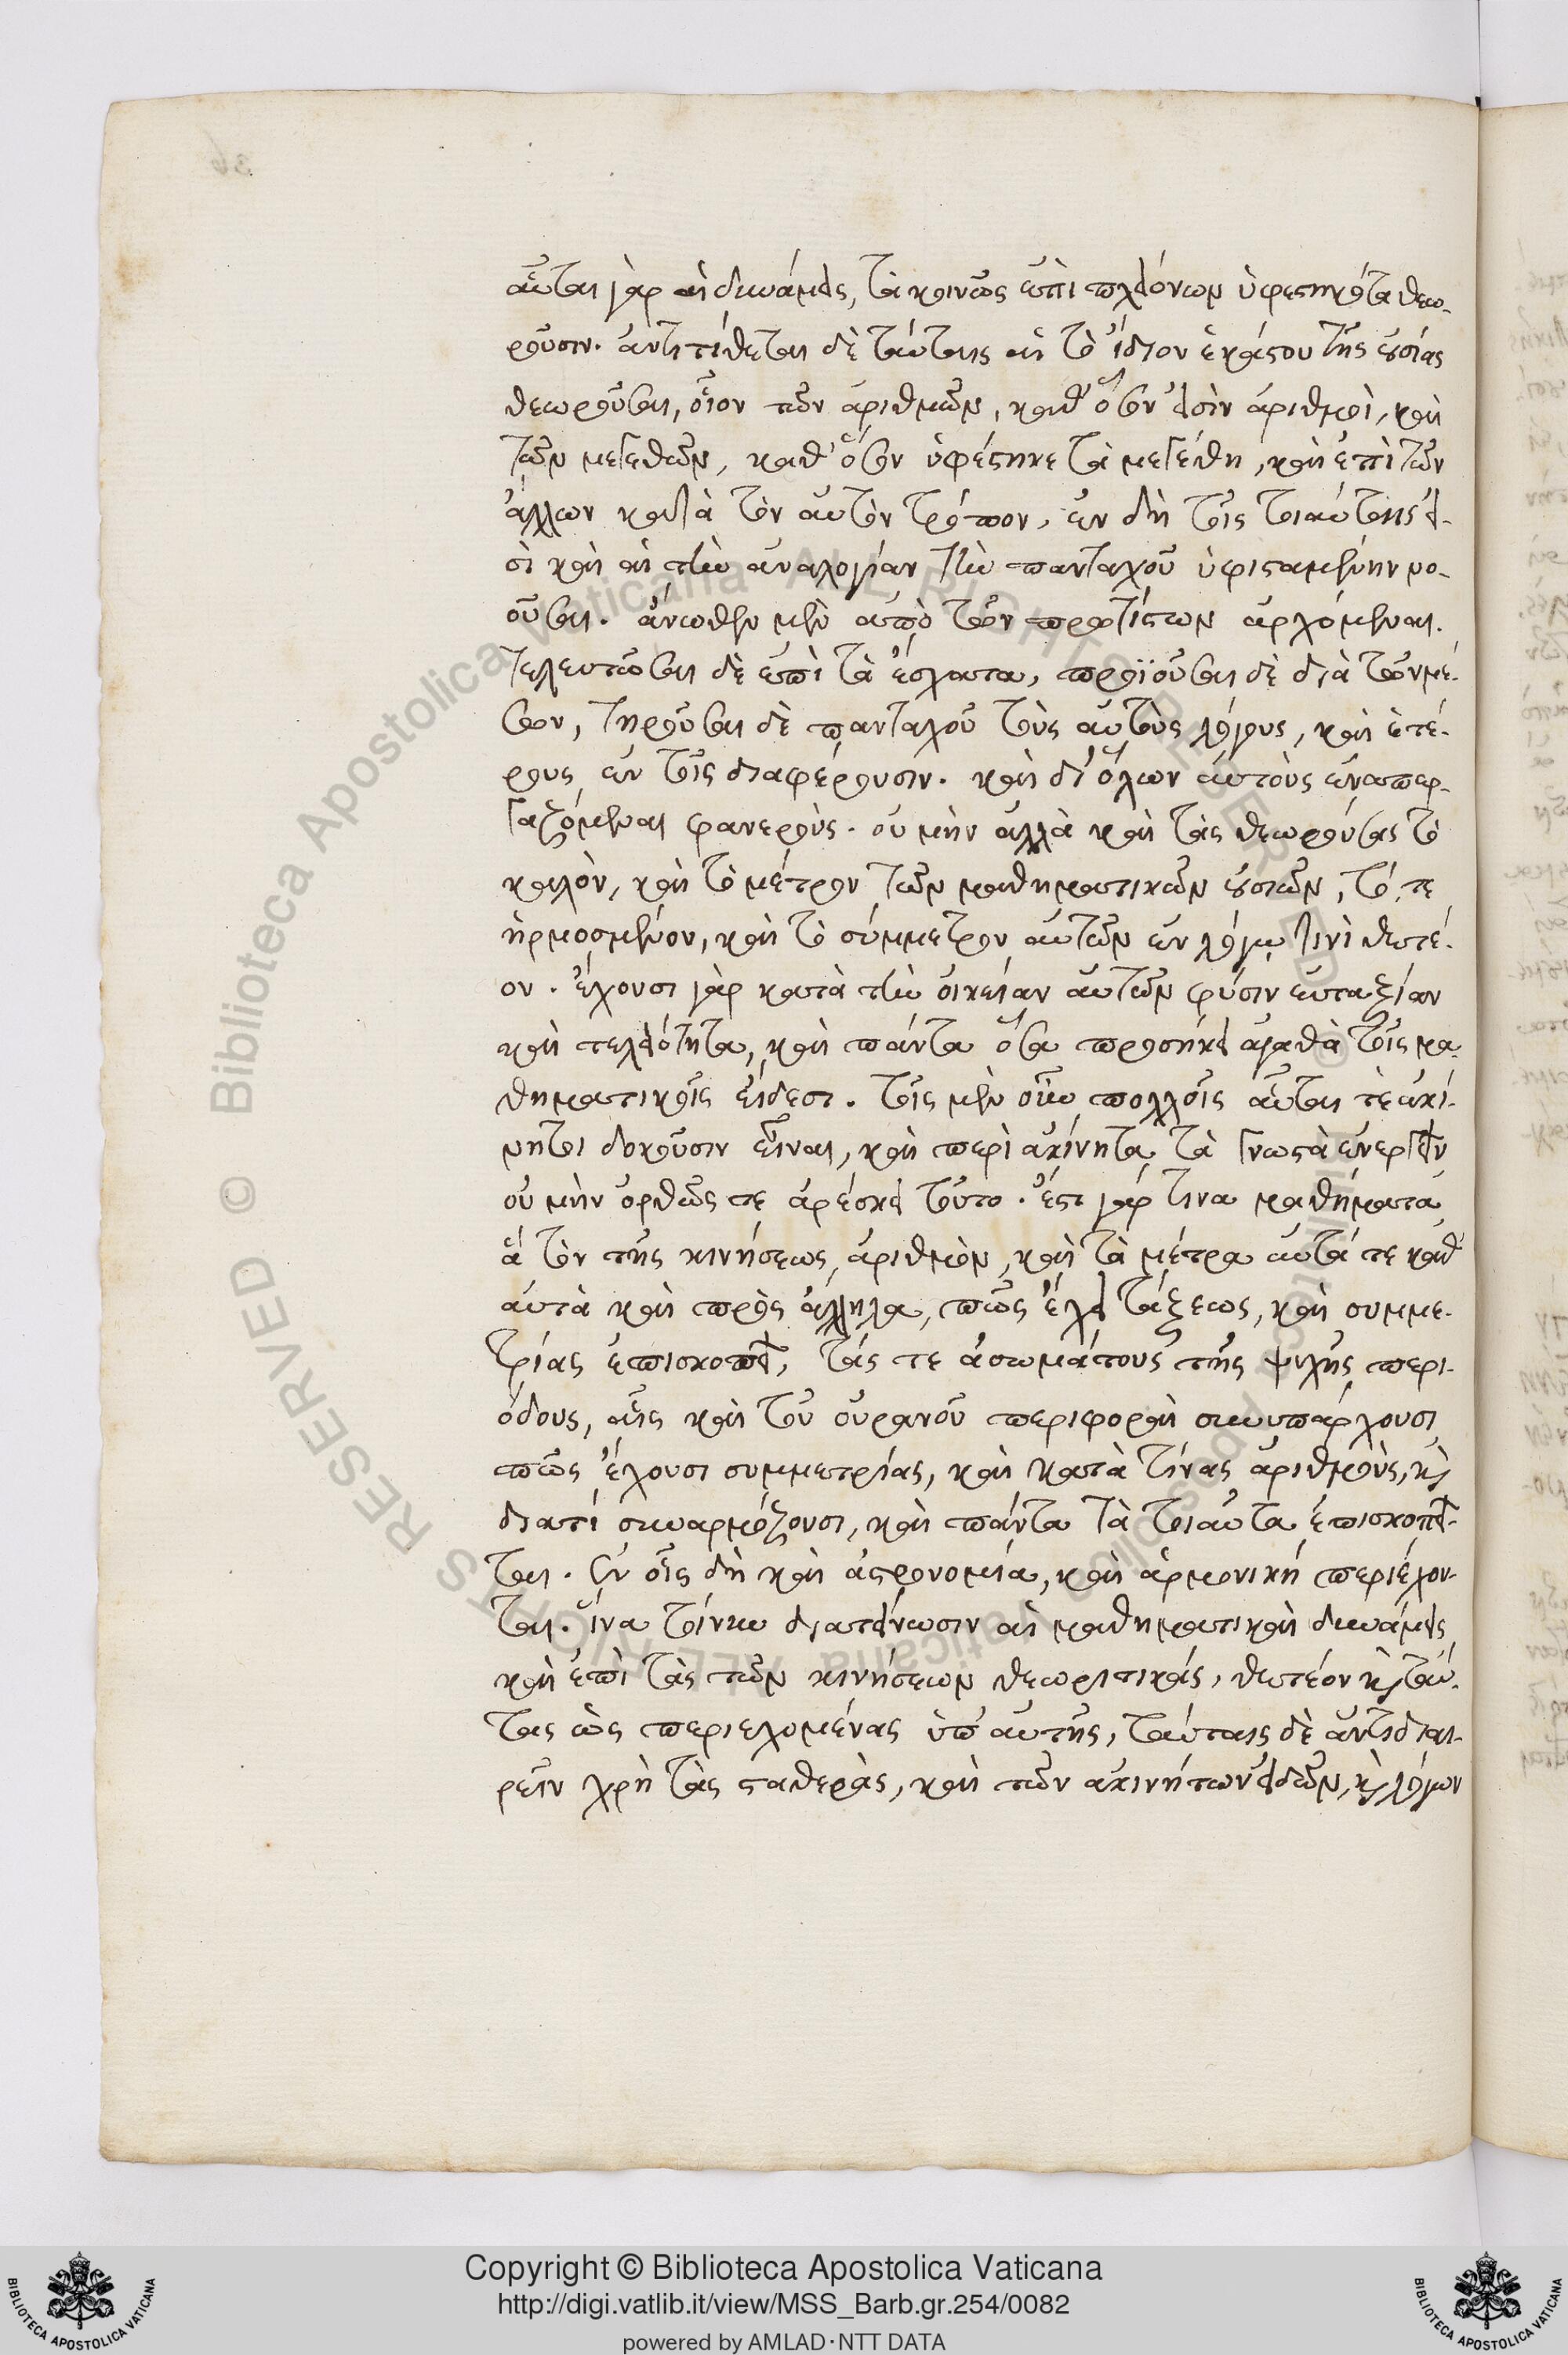 αὗται γὰρ αἱ δυνάμεις, τὰ κοινῶς ἐπὶ πλειόνων ὑφεστηκότα θεω-
ροῦσιν. ἀντιτίθεται δὲ ταύταις αἱ τὸ ἴδιον ἑκάστου τῆς οὐσίας
θεωροῦσαι, οἷον τῶν ἀριθμῶν, καθ' ὅσον εἰσὶν ἀριθμοὶ, καὶ
τῶν μεγεθῶν, καθ' ὅσον ὑφέστηκε τὰ μεγέθη, καὶ ἐπὶ τῶν
ἄλλων κατὰ τὸν αὐτὸν τρόπον, ἐν δὴ τοῖς τοιαύταις εἰ-
σὶ καὶ αἱ τὴν ἀναλογίαν τὴν πανταχοῦ ὑφισταμένην νο-
οῦσαι. ἄνωθεν μὲν ἀπὸ τῶν πρωτίστων ἀρχόμεναι.
τελευτῶσαι δὲ ἐπὶ τὰ ἔσχατα, προϊοῦσαι δὲ διὰ τῶν μέ-
σων, τηροῦσαι δὲ πανταχοῦ τοὺς αὐτοὺς λόγους, καὶ ἑτέ-
ρους ἐν τοῖς διαφέρουσιν. καὶ δι' ὅλων αὐτοὺς ἐναπερ-
γαζόμεναι φανερούς. οὐ μὴν ἀλλὰ καὶ τὰς θεωρούσας τὸ
καλὸν, καὶ τὸ μέτρον τῶν μαθηματικῶν οὐσιῶν, τό, τε
ἡρμοσμένον, καὶ τὸ σύμμετρον αὐτῶν ἐν λόγῳ τινὶ θετέ-
ον. ἔχουσι γὰρ κατὰ τὴν οἰκείαν αὐτῶν φύσιν εὐταξίαν
καὶ τελειότητα, καὶ πάντα ὅσα προσήκει ἀγαθὰ τοῖς μα-
θηματικοῖς εἴδεσι. τοῖς μὲν οὖν πολλοῖς αὗται τὲ ἀκί-
νητοι δοκοῦσιν εἶναι, καὶ περὶ ἀκίνητα τὰ γνωστὰ ἐνεργεῖν
οὐ μὴν ὀρθῶς τε ἀρέσκει τοῦτο. ἔστι γάρ τινα μαθήματα
ἃ τὸν τῆς κινήσεως ἀριθμὸν, καὶ τὰ μέτρα αὐτά τε καθ'
αὑτὰ καὶ πρὸς ἄλληλα, πῶς ἔχει τάξεως, καὶ συμμε-
τρίας ἐπισκοπεῖ, τάς τε ἀσωμάτους τῆς ψυχῆς περι-
όδους, αἷς καὶ τοῦ οὐρανοῦ περιφοραὶ συνυπάρχουσι
πῶς ἔχουσι συμμετρίας, καὶ κατὰ τίνας ἀριθμοὺς, κ
διατί συναρμόζουσι, καὶ πάντα τὰ τοιαῦτα ἐπισκοπεῖ-
ται. ἐν οἷς δὴ καὶ ἀστρονομία, καὶ ἁρμονικὴ περιέχον-
ται. ἵνα τοίνυν διατείνωσιν αἱ μαθηματικαὶ δυνάμεις
καὶ ἐπὶ τὰς τῶν κινήσεων θεωρητικάς, θετέον κ ταύ-
τας ὡς περιεχομένας ὑπ' αὐτῆς, ταύταις δὲ ἀντιδιαι-
ρεῖν χρὴ τὰς σταθερὰς, καὶ τῶν ἀκινήτων εἰδῶν, κ λόγων
36
Copyright © Biblioteca Apostolica Vaticana
http://digi.vatlib.it/view/MSS_Barb.gr.254/0082
powered by AMLAD·NTT DATA